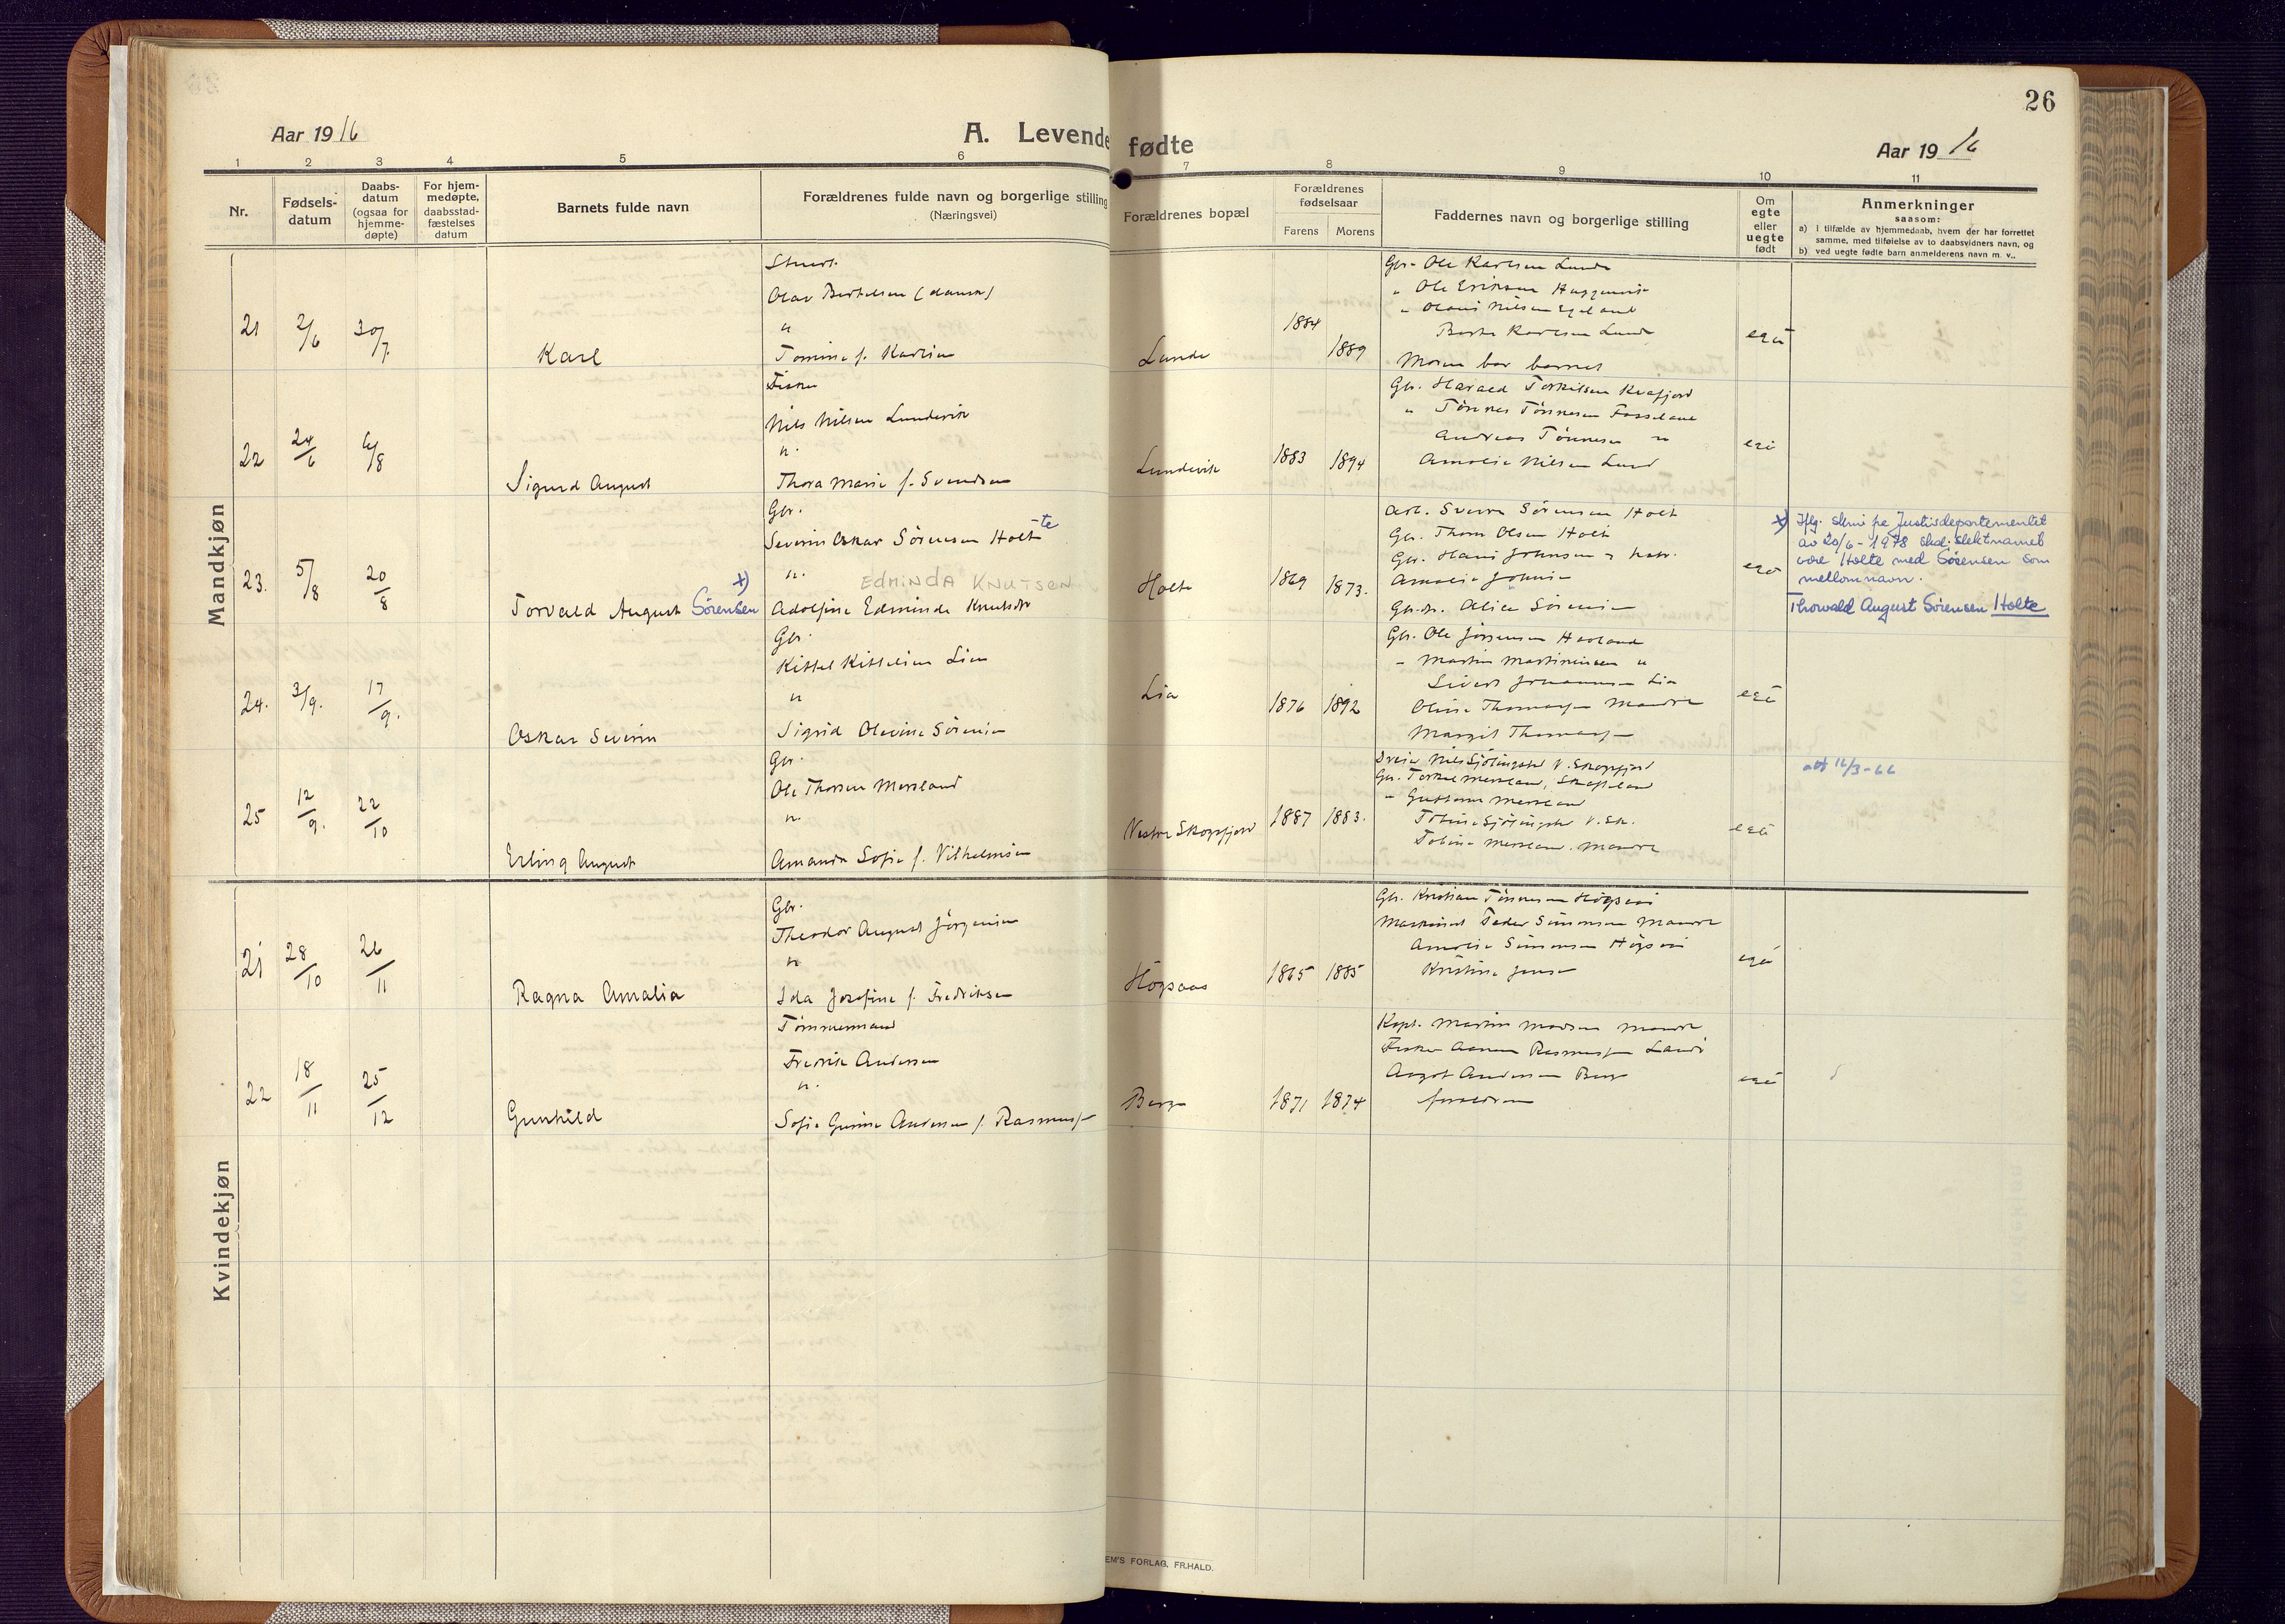 26
Aar 1916
A. Levende fødte
Aar 1916
1 2 3 4 5 6 7 8 9 10 11
Nr.
Fødsels-
datum
Daabs-
datum
(ogsaa for
hjemme-
døpte)
For hjem-
medøpte,
daabsstad-
fæstelses
datum
Barnets fulde navn
Forældrenes fulde navn og borgerlige stilling
(Næringsvei)
Forældrenes bopæl
Forældrenes
fødselsaar
Farens Morens
Faddernes navn og borgerlige stilling
Om
egte
eller
uegte
født
Anmerkninger
saasom:
a) I tilfælde av hjemmedaab, hvem der har forrettet
samme, med tilføielse av to daabsvidners navn, og
b) ved uegte fødte barn anmelderens navn m. v..
Mandkjøn
21 2/6 30/7 Karl
Stuert
Olav Bertelsen (dansk)
"
Tomine f. Karlsen
Lunde 1884 1889
Gbr. Ole Karlsen Lunde
" Ole Eriksen
" Olaus Nilsen Egeland
Berte Karlsen Lunde
Moren bar barnet
egte
22 24/6 6/8 Sigurd August
Fisker
Nils Nilsen Lundevik
"
Thora Marie f. Svendsen
Lundevik 1883 1894
Gbr. Harald Torkilsen Kvafjord
" Tønnes Tønnesen Fosseland
Andreas Tønnesen "
Amalie Nilsen Lund
egte
23. 5/8 20/8 Torvald August Sörensen x)
Gbr.
Severin Oskar Sörensen Holt-te
" EDMINDA KNUTSEN
Adolfine Edminde Knutsdtr
Holte 1869 1873.
Arb. Sverre Sørensen Holt
Gbr. Thom Olsen Holt
Gbr. Hans Johnsen
Amalie Johnsen
Alice Sørensen
egte
x) Iflg. skriv fra Justisdepartementet
av 20/6 - 1978 skal slektnavnet
være Holte med Sörensen som
mellomnavn.
Thorvald August Sörensen Holte
24. 3/9. 17/9. Oskar Severin
Gbr.
Kittel Kittelsen Lien
"
Sigrid Olevine Sörensen
Lia 1876 1892
Gbr. Ole Jörgensen Havland
" Martin Martinisen "
Sivert Johannesen Lia
Oline Thomassen Mandal
Margit Thomassen
egte
25 12/9. 22/10 Erling August
Gbr.
Ole Thorsen Mersland
"
Amanda Sofie f. Vilhelmsen
Vestre Skogsfjord 1887 1883.
Nils Sjölingstad V. Skogsfjord
Gbr. Torkel Mersland,
" Guttorm Mersland
Tobine Sjölingstad V. Sk.
Tobine Mersland. Mandal
egte
att 16/3-66
Kvindekjøn
21 28/10 26/11 Ragna Amalia
Gbr.
Theodor August Jörgensen
"
Ida Josefine f. Fredriksen
Högsaas 1865 1885
Gbr. Kristian Tönnesen Högsaas
Maskinist Peder Simonsen Mandal
Amalie Simonsen Högsaas
Kristine Jensen
egte
22 18/11 25/12 Gunhild
Tömmermand
Fredrik Andersen
"
Sofie Gurine Andersen f. Rasmussen
Berge 1871 1874
Kapt. Martin Madsen Mandal
Fisker Aanen Rasmussen
Aagot Andersen Berge
forældrene
egte
EM'S FORLAG, FR.HALD.